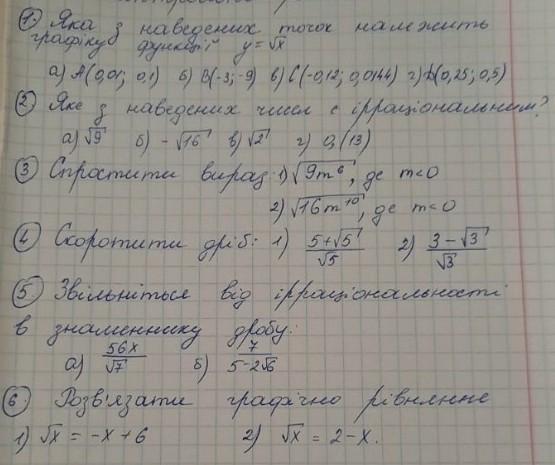 1. Яка з наведених точок належить
графіку функції y=√x
а) A(0,01; 0,1) б) B(-3; -9) в) C(-0,12; 0,0144) г) D(0,25; 0,5)
2 Яке з наведених чисел є ірраціональним?
а) √9 б) -√16 в) √2 г) 0,(13)
3 Спростити вираз: 1) √9m⁶, де m<0
2) √16m¹⁰, де m<0
4 Скоротити дріб: 1) (5+√5)/√5 2) (3-√3)/√3
5 Звільніться від ірраціональності
в знаменнику дробу:
а) 56x/√7 б) 7/(5-2√6)
6 Розв'язати графічно рівняння
1) √x = -x+6 2) √x = 2-x.